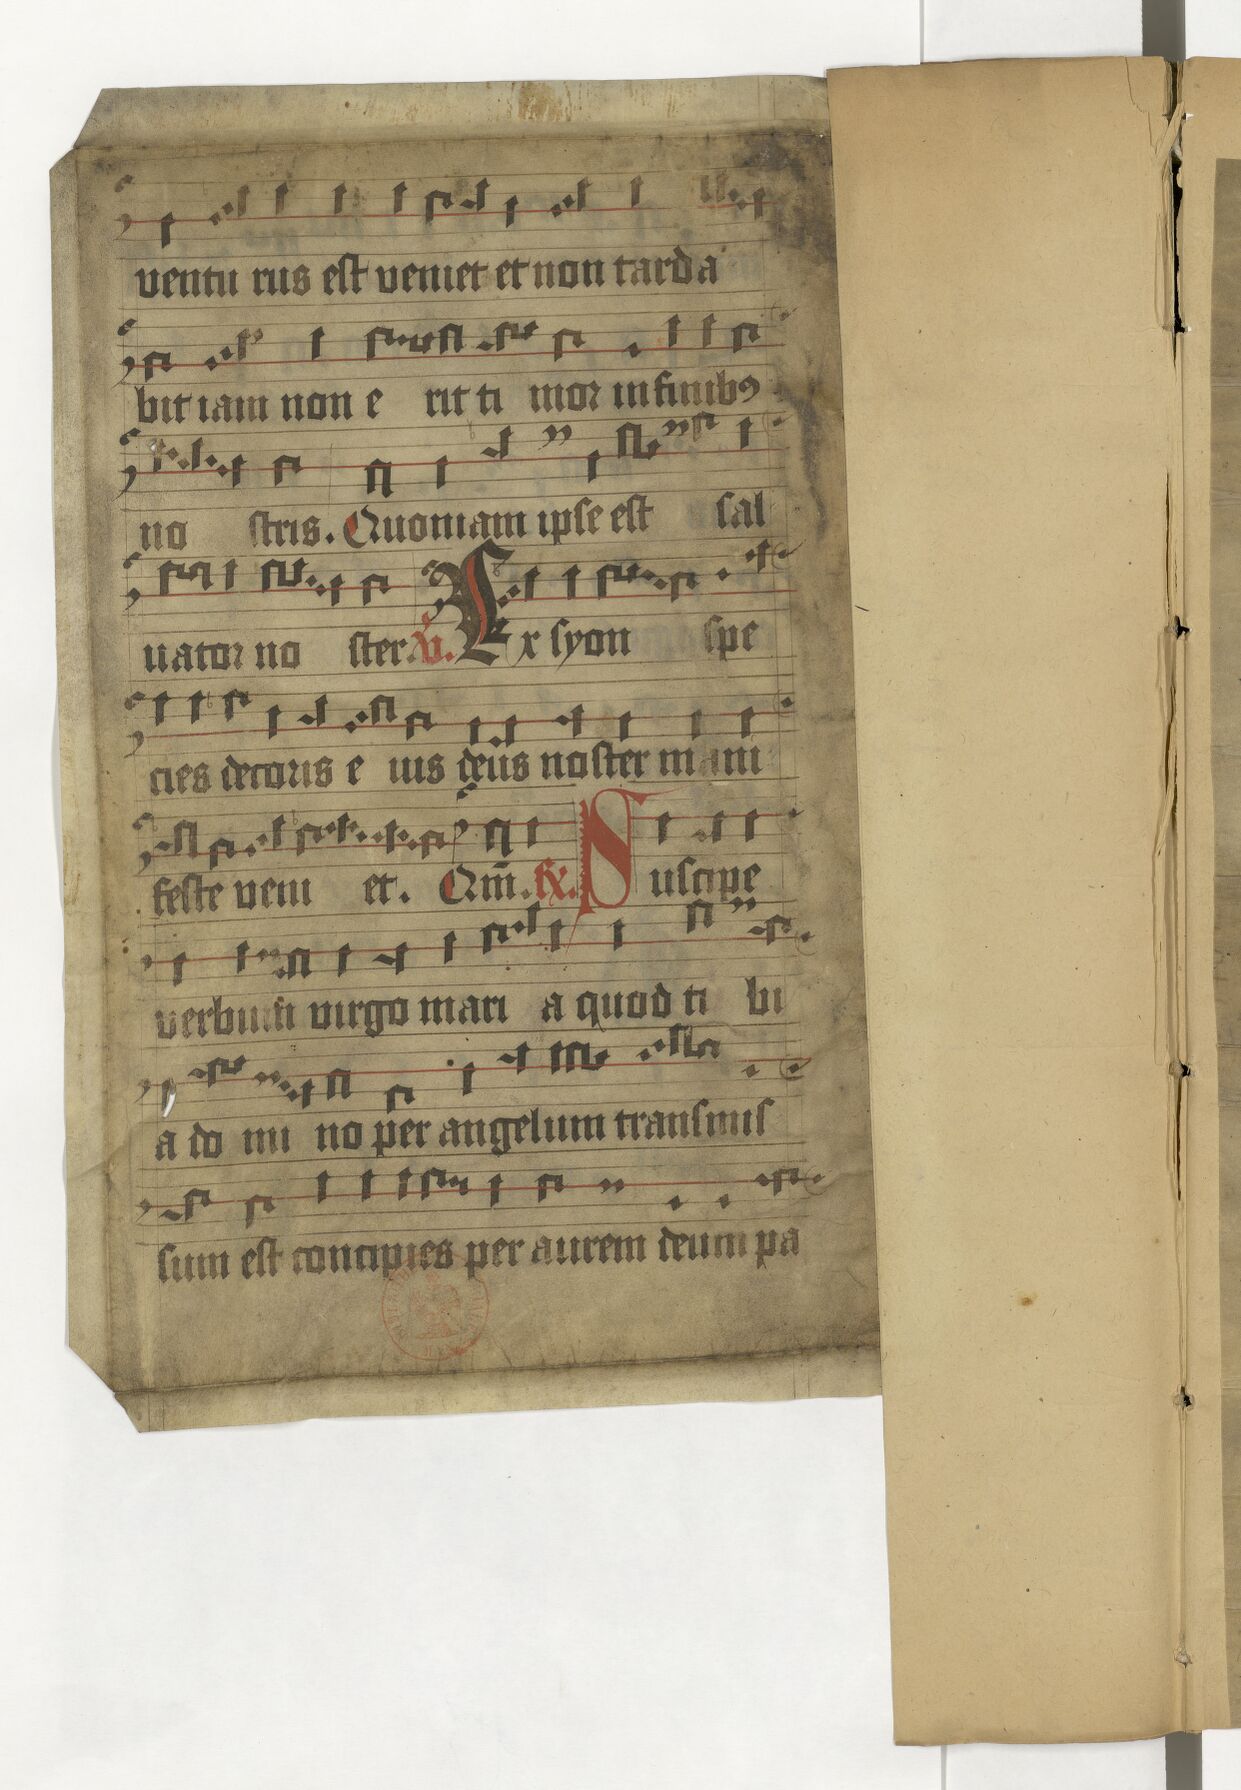 ventu rus est veniet et non tarda
bit iam non e rit ti mor in finibꝰ
no stris. Quoniam ipse est sal
uator no ster. V̾. Ex syon spe
cies decoris e ius deus noster mani
feste veni et. Qm̄. R̾. Suscipe
verbum virgo mari a quod ti bi
a do mi no per angelum transmis
sum est concipies per aurem deum pa